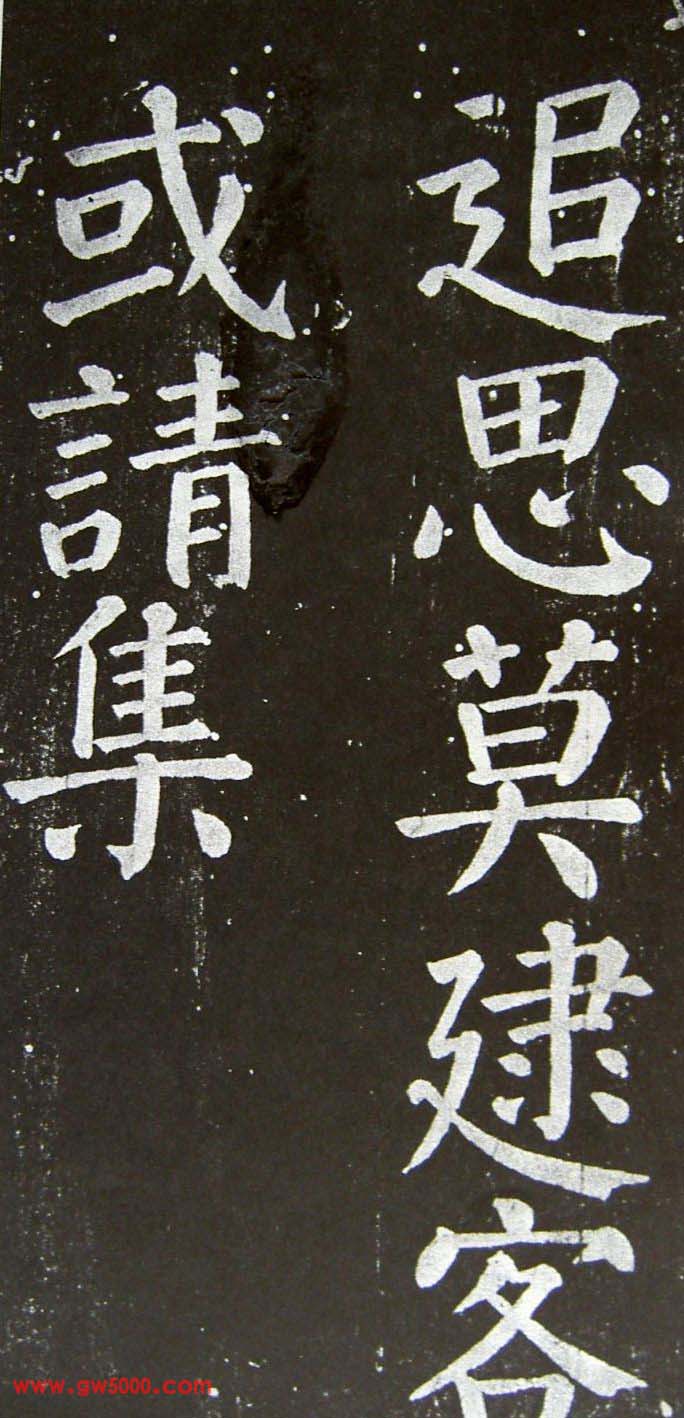 追思莫逮客
或請集
www.gw5000.com